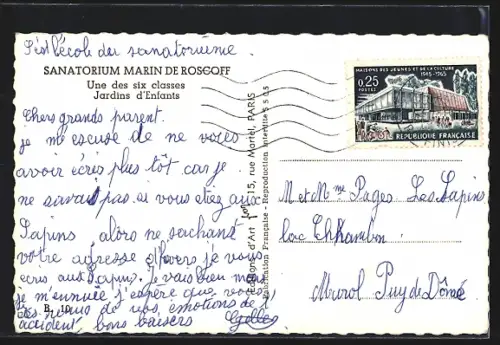 C'est l'école du sanatorium.
SANATORIUM MARIN DE ROSCOFF
Une des six classes
Jardins d'Enfants
Chers grands parent.
je m'escuse de ne vous
avoir écris plus tôt car je
ne savais pas si vous étiez aux
Sapins, alors ne sachant
votre adresse d'hiver je vous
écris aux Sapins. Je vais bien mais
je m'ennuie j'espère que vous
êtes remis de vos émotions de l'
accident, bons baisers
Gilles
B. 10
Editions d'Art
15, rue Martel, PARIS
Fabrication Française - Reproduction interdite
MAISONS DES JEUNES ET DE LA CULTURE
1945-1965
0,25
POSTES
REPUBLIQUE FRANÇAISE
M et Mme Pages Les Sapins
lac Chambon
Murol Puy de Dôme